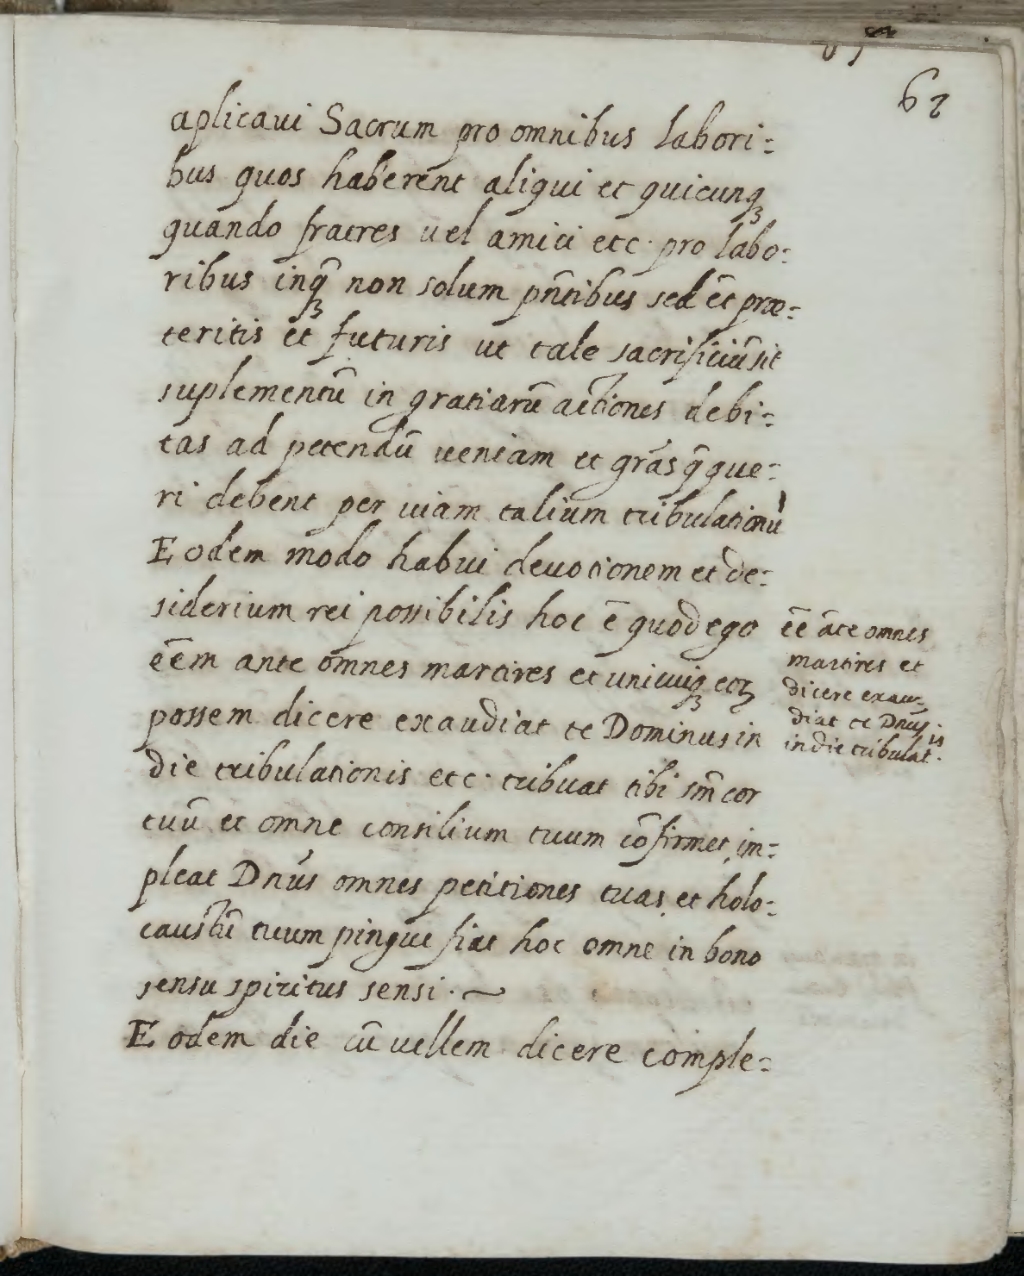 62
aplicaui Sacrum pro omnibus labori=
bus quos haberent aliqui et quicunqꝫ
quando fratres uel amici etc. pro labo=
ribus inqꝫ̃ non solum pñtibus sed ẽt præ=
teritis et futuris ut tale sacrificiũ sit
suplementũ in gratiarũ actiones debi=
tas ad petendũ ueniam et grãs q̃ que=
ri debent per uiam talium tribulationũ
Eodem modo habui deuotionem et de=
siderium rei possibilis hoc ẽ quod ego
eẽm ante omnes martires et unicuiqꝫ eoꝝ
possem dicere exaudiat te Dominus in
die tribulationis etc. tribuat tibi sm̃ cor
tuũ et omne consilium tuum cõfirmet im=
pleat Dnũs omnes petitiones tuas et holo=
caustũ tuum pingue fiat hoc omne in bono
sensu spiritus sensi. ~
Eodem die cũ uellem dicere comple=
eẽ ãte omnes
martires et
dicere exau=
diat te Dnus.
in die tribulat.is